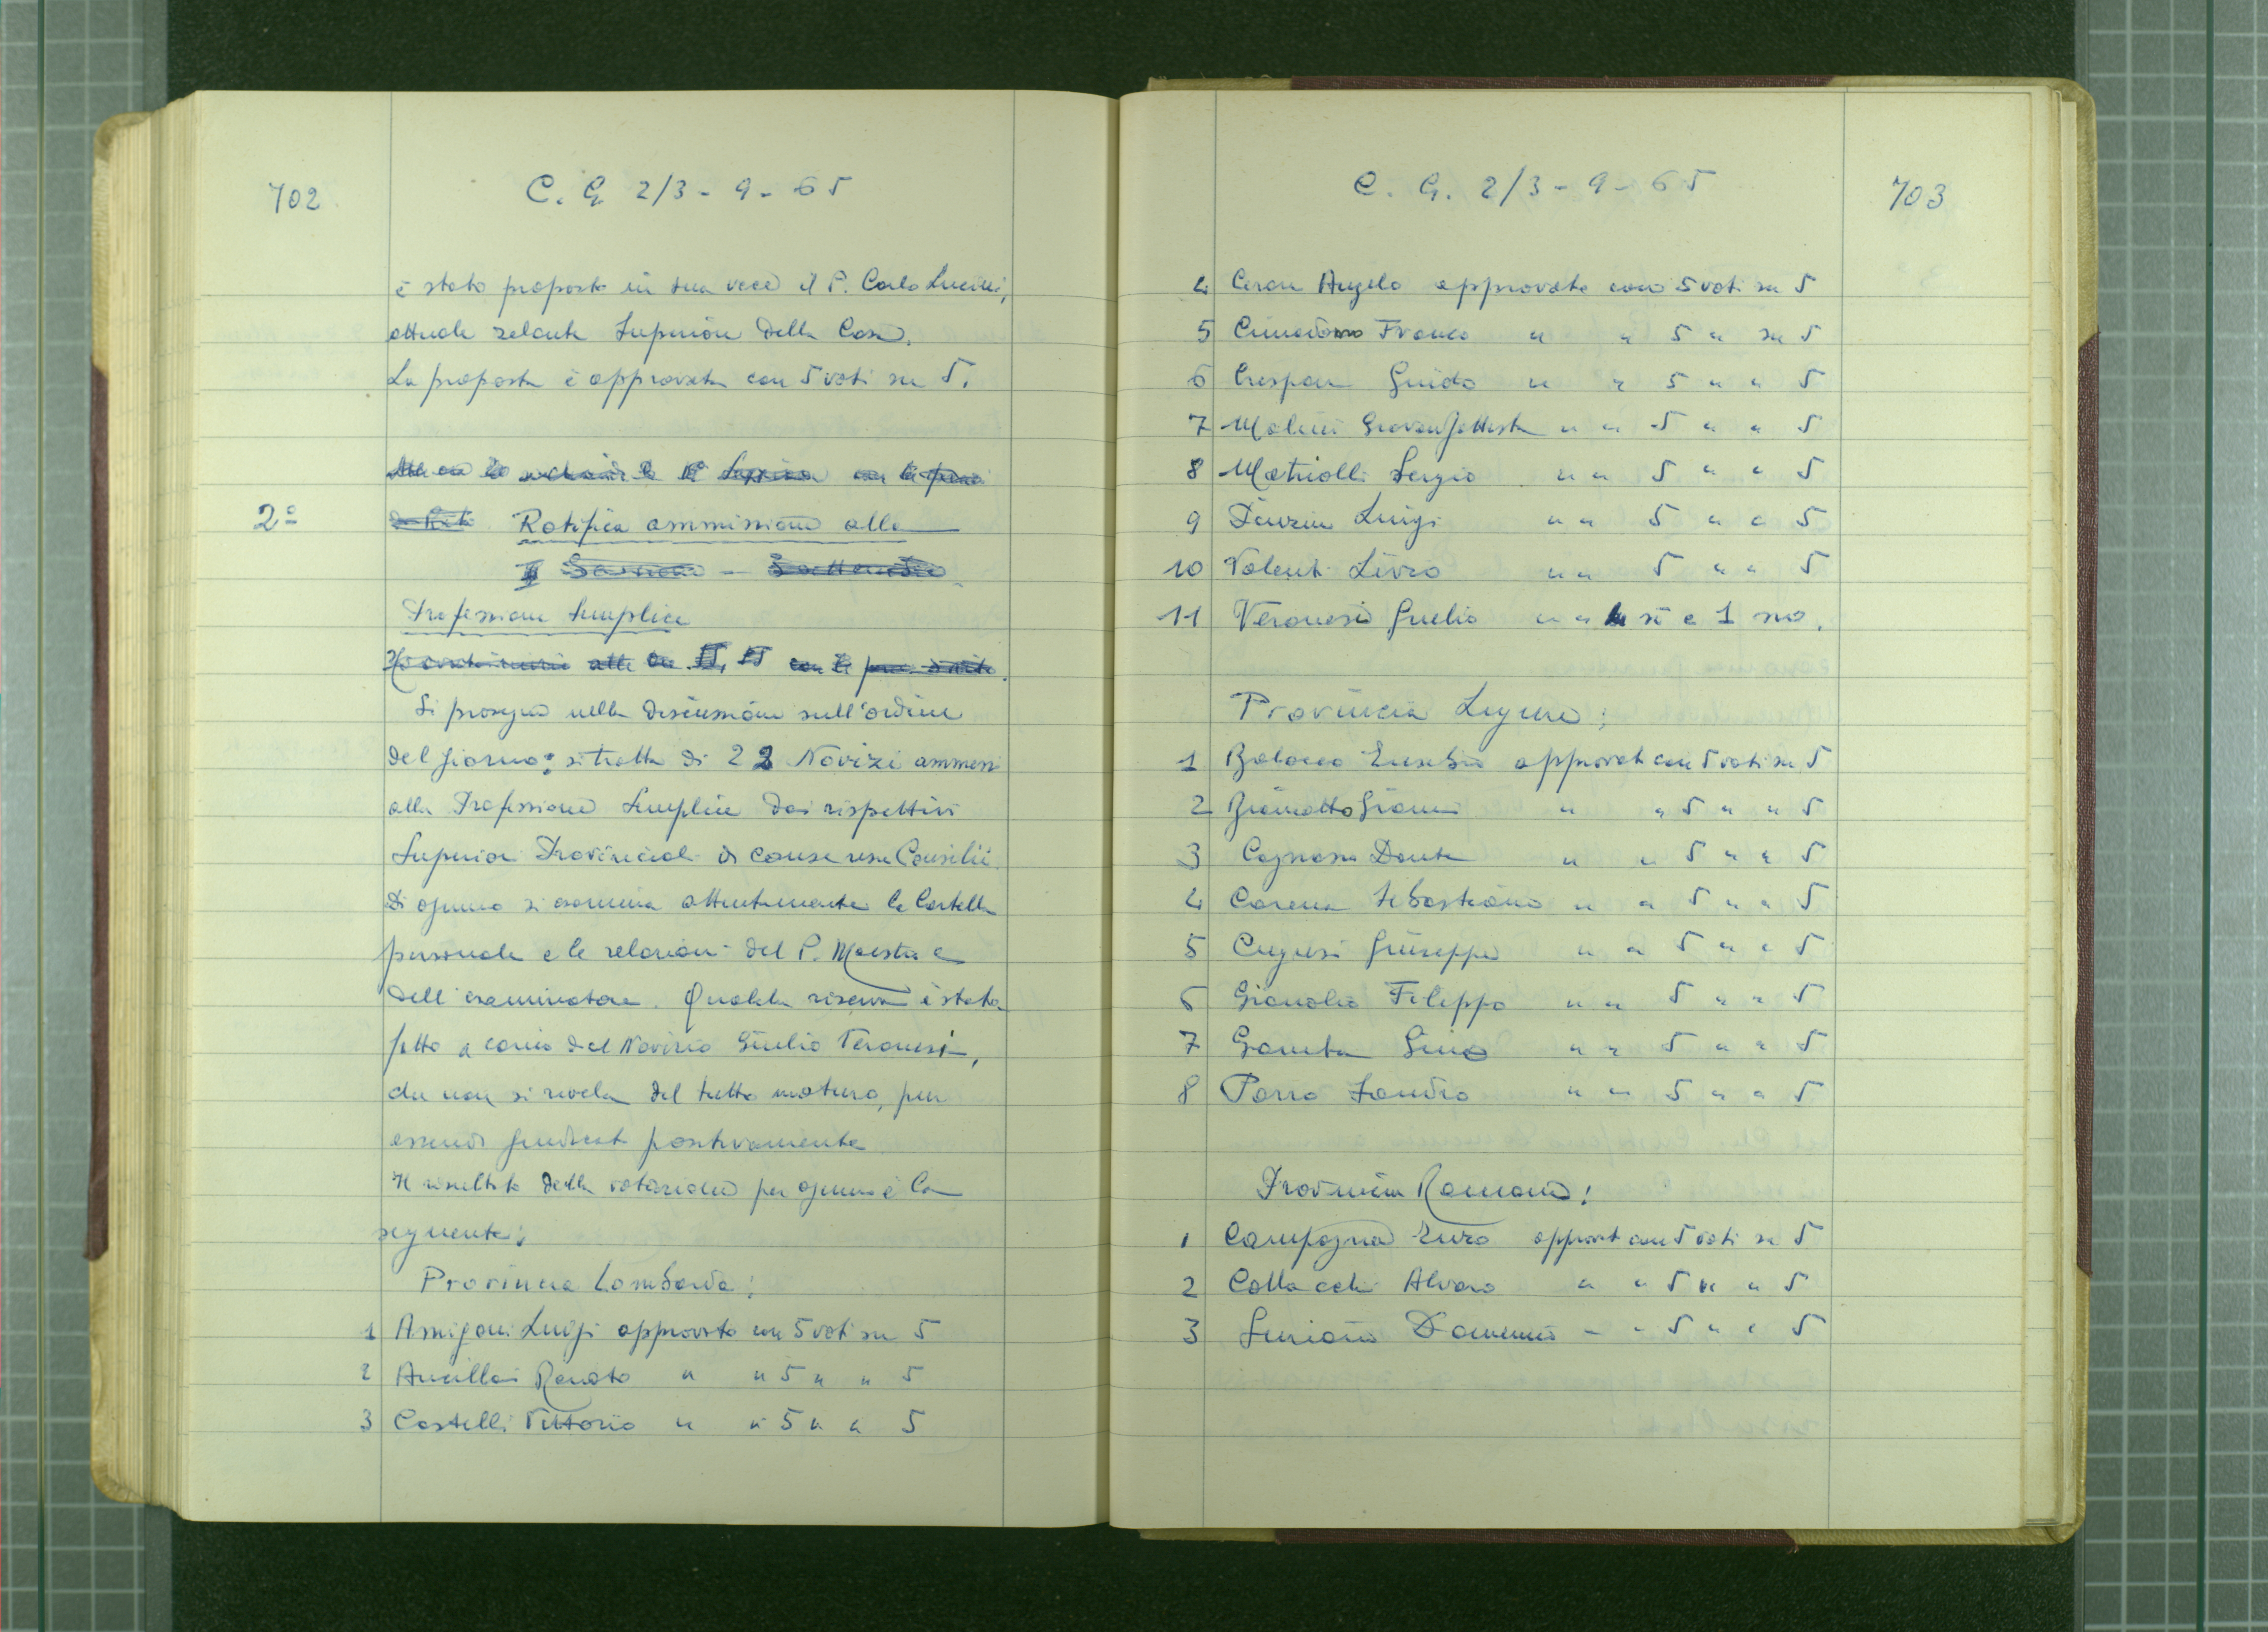 702
C. G. 2/3 - 9 - 65
è stato proposto in sua vece il P. Carlo Lucini,
attuale zelante Superiore della Casa.
La proposta è approvata con 5 voti su 5.
2º Ratifica ammissione alla
Professione Semplice
Si prosegue nella discussione sull'ordine
del giorno: si tratta di 22 Novizi ammessi
alla Professione Semplice dai rispettivi
Superiori Provinciali
Di ognuno si esamina attentamente la Cartella
personale e le relazioni del P. Maestro e
dell'esaminatore. Qualche riserva è stata
fatta a carico del Novizio Giulio Veronesi,
che non si rivela del tutto maturo, pur
essendo giudicato positivamente
Il risultato della votazione per ognuno è la
seguente:
Provincia Lombarda:
1 Amigoni Luigi approvato con 5 voti su 5
2 Ancillai Renato " " 5 " " 5
3 Castelli Vittorio " " 5 " " 5
C. G. 2/3 - 9 - 65
703
4 Ceron Angelo approvato con 5 voti su 5
5 Franco " " 5 " su 5
6 Crespan Guido " " 5 " " 5
7 Molini " " 5 " " 5
8 Matriolli Sergio " " 5 " " 5
9 Luigi " " 5 " " 5
10 Valenti Livio " " 5 " " 5
11 Veronesi Giulio " " 4 sì e 1 no.
Provincia Ligure:
1 Balocco Eusebio approvato con 5 voti su 5
2 Gianni " " 5 " " 5
3 Cagnasso Dante " " 5 " " 5
4 Carena Sebastiano " " 5 " " 5
5 Cugusi Giuseppe " " 5 " " 5
6 Filippo " " 5 " " 5
7 Gino " " 5 " " 5
8 Porro Sandro " " 5 " " 5
Provincia Romana:
1 Campagna Enzo approvato con 5 voti su 5
2 Alvaro " " 5 " " 5
3 " " 5 " " 5